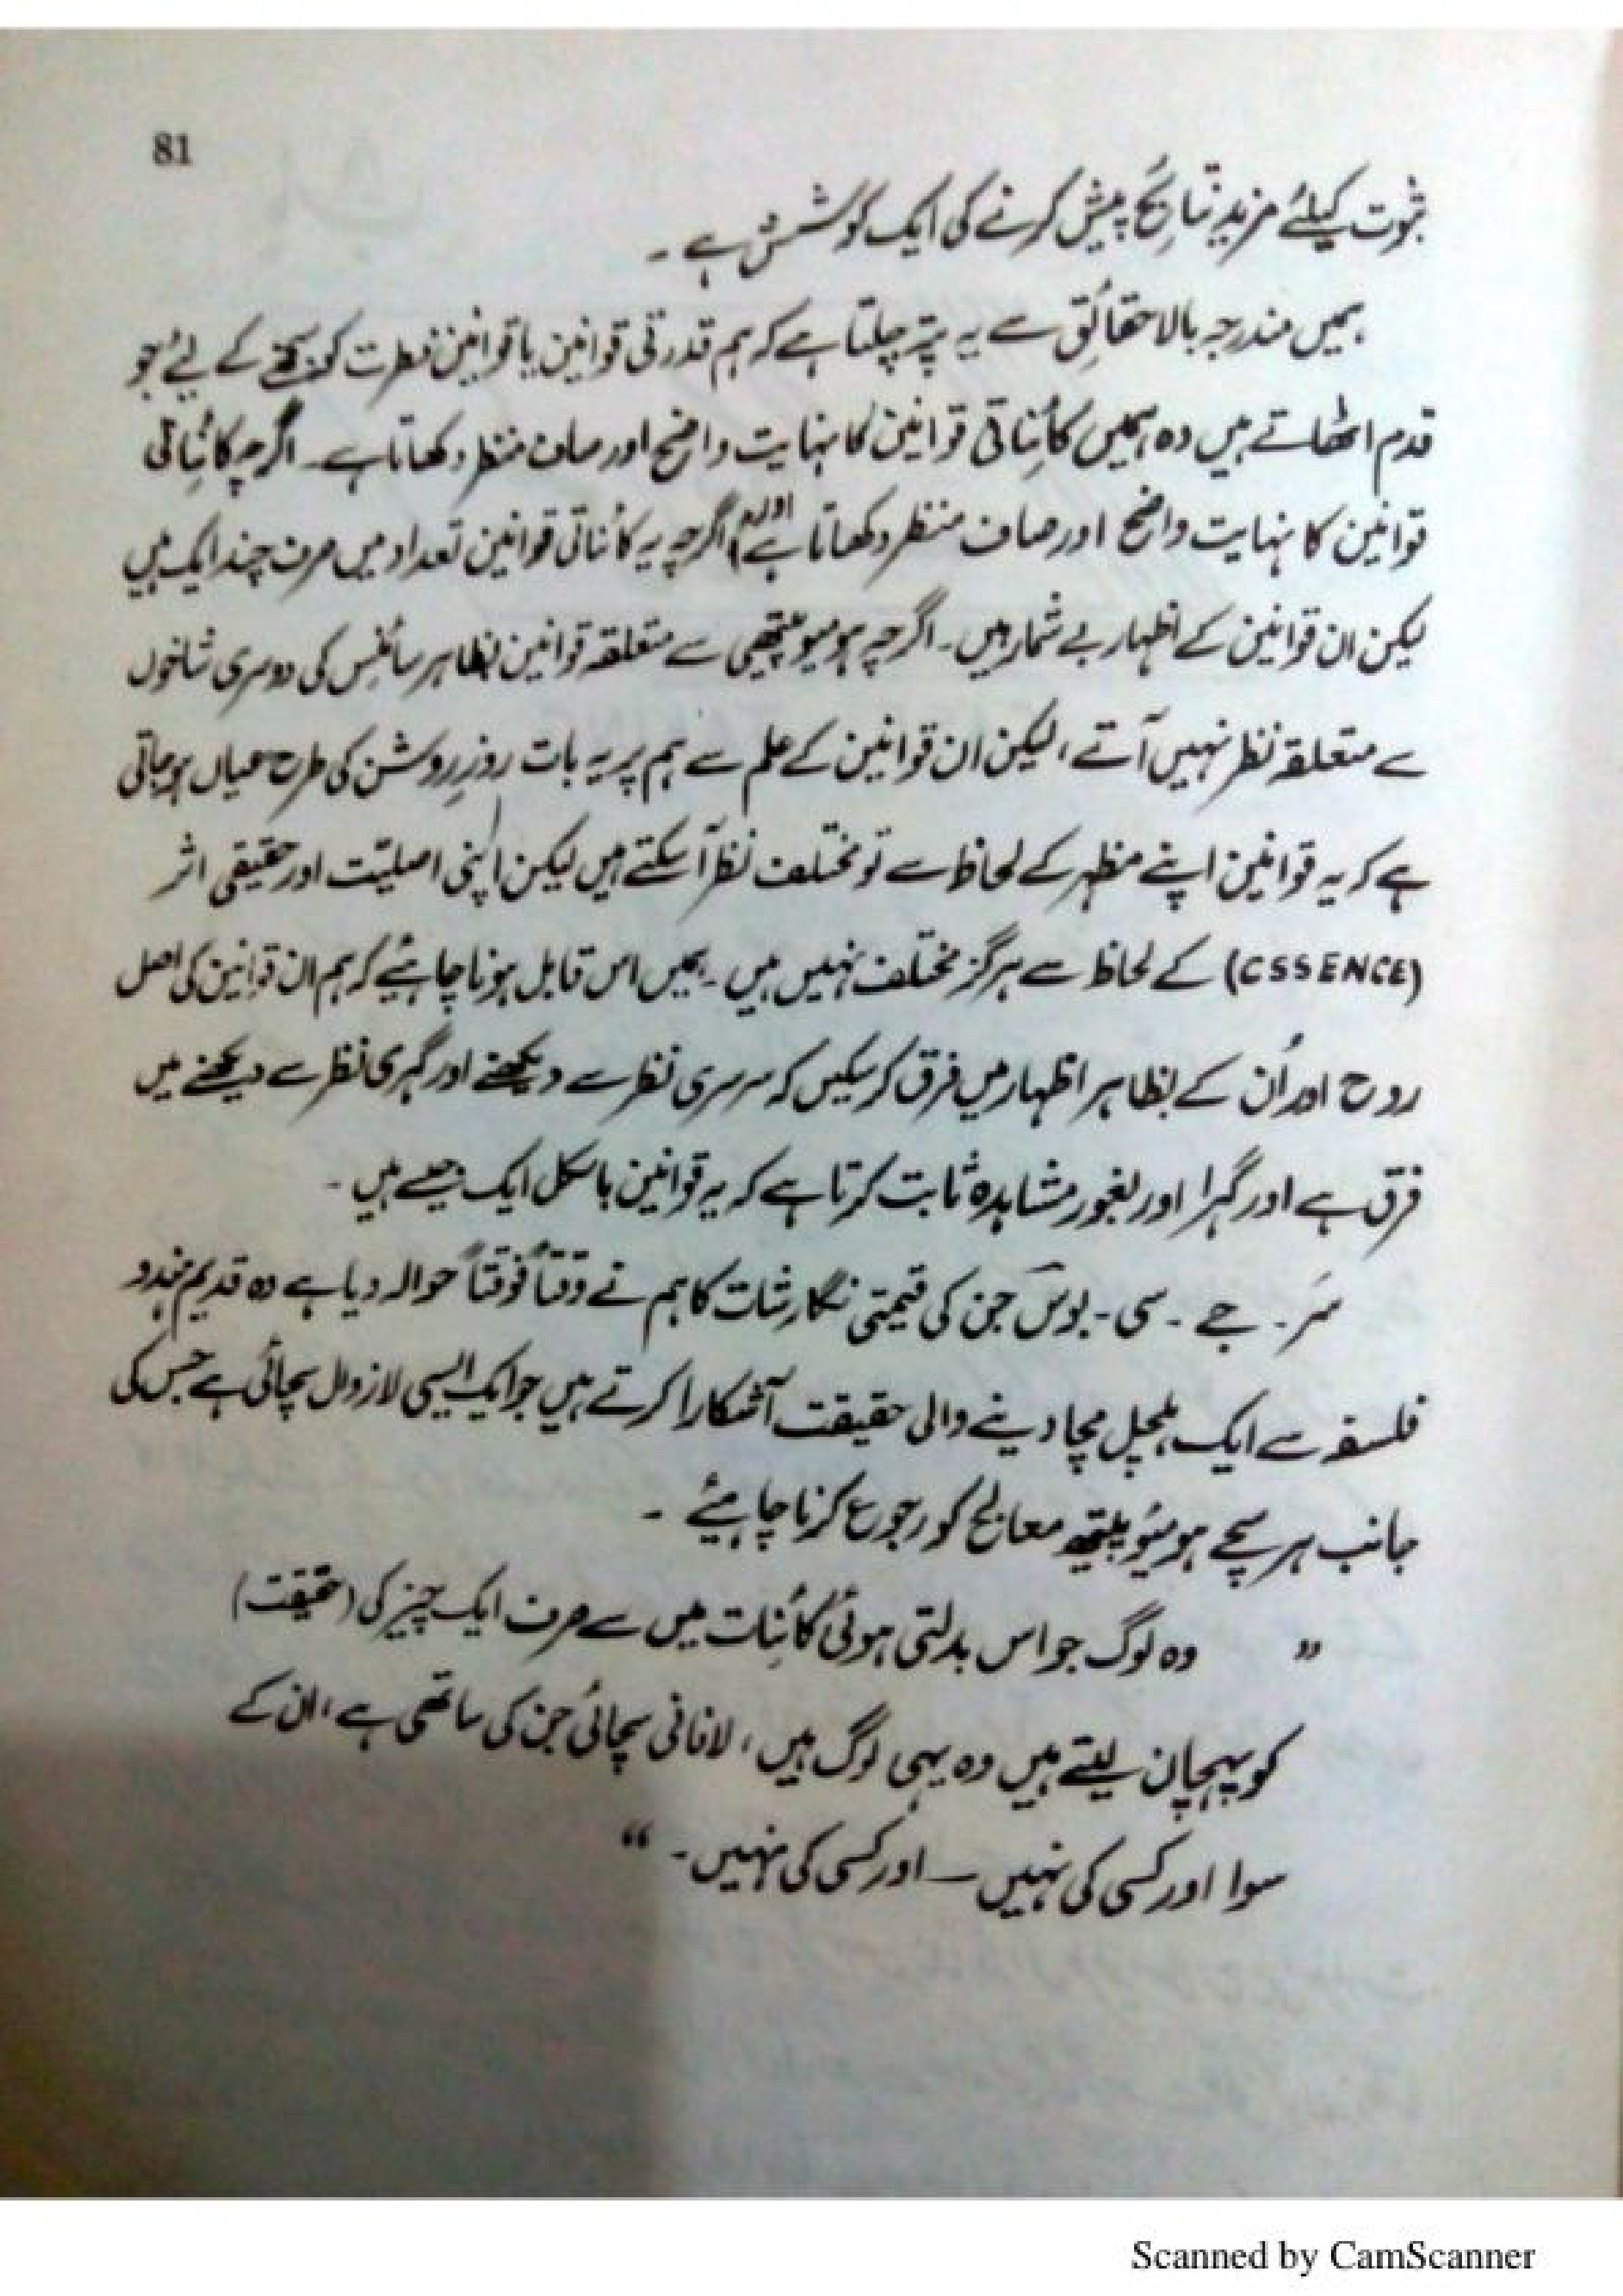 81
ثبوت کیلئے مزید نتائج پیش کرنے کی ایک کوشش ہے ۔
ہمیں مندرجہ بالا حقائق سے یہ پتہ چلتا ہے کہ ہم قدرتی قوانین یا قوانین فطرت کو سمجھنے کے لیے جو
قدم اٹھاتے ہیں وہ ہمیں کائناتی قوانین کا نہایت واضح اور صاف منظر دکھاتا ہے۔ اگرچہ کائناتی
قوانین کا نہایت واضح اور صاف منظر دکھاتا ہے اور اگرچہ یہ کائناتی قوانین تعداد میں صرف چند ایک ہیں
لیکن ان قوانین کے اظہار بے شمار ہیں۔ اگرچہ ہومیوپیتھی سے متعلقہ قوانین بظاہر سائنس کی دوسری شاخوں
سے متعلقہ نظر نہیں آتے، لیکن ان قوانین کے علم سے ہم پر یہ بات روزِ روشن کی طرح عیاں ہو جاتی
ہے کہ یہ قوانین اپنے مظہر کے لحاظ سے تو مختلف نظر آ سکتے ہیں لیکن اپنی اصلیّت اور حقیقی اثر
(CSSENCE) کے لحاظ سے ہرگز مختلف نہیں ہیں ۔ ہمیں اس قابل ہونا چاہیئے کہ ہم ان قوانین کی اصل
روح اور اُن کے بظاہر اظہار میں فرق کر سکیں کہ سرسری نظر سے دیکھنے اور گہری نظر سے دیکھنے میں
فرق ہے اور گہرا اور بغور مشاہدہ ثابت کرتا ہے کہ یہ قوانین بالکل ایک جیسے ہیں ۔
سَر ۔ جے ۔ سی ۔ بوس جن کی قیمتی نگارشات کا ہم نے وقتاً فوقتاً حوالہ دیا ہے وہ قدیم ہندو
فلسفہ سے ایک ہلچل مچا دینے والی حقیقت آشکارا کرتے ہیں جو ایک ایسی لازوال سچائی ہے جس کی
جانب ہر سچے ہومیوپیتھ معالج کو رجوع کرنا چاہیئے ۔
” وہ لوگ جو اس بدلتی ہوئی کائنات میں سے صرف ایک چیز کی (حقیقت)
کو پہچان لیتے ہیں وہ یہی لوگ ہیں، لافانی سچائی جن کی ساتھی ہے، ان کے
سوا اور کسی کی نہیں — اور کسی کی نہیں ۔ “
Scanned by CamScanner